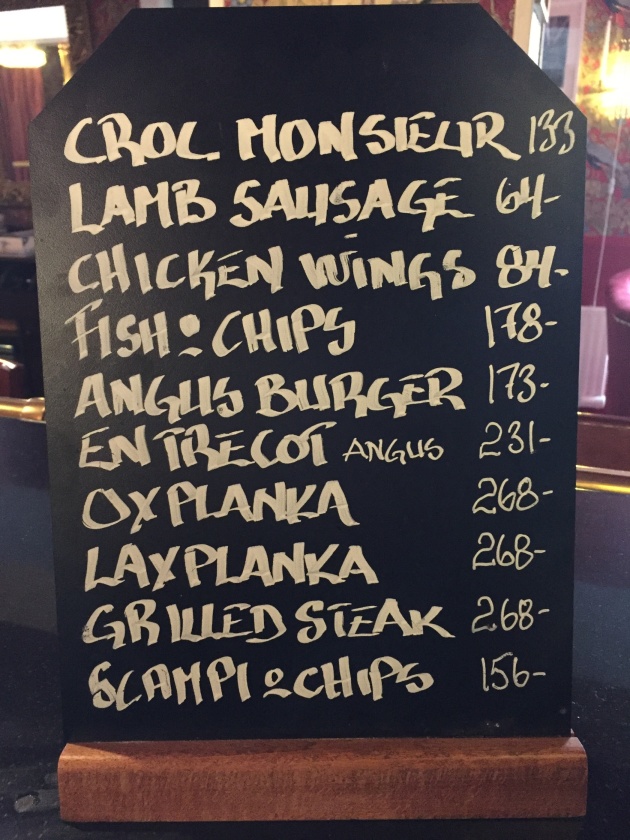 CROC MONSIEUR 133
LAMB SAUSAGE 64-
CHICKEN WINGS 84-
FISH o CHIPS 178-
ANGUS BURGER 173-
ENTRECOT ANGUS 231-
OXPLANKA 268-
LAXPLANKA 268-
GRILLED STEAK 268-
SCAMPI o CHIPS 156-